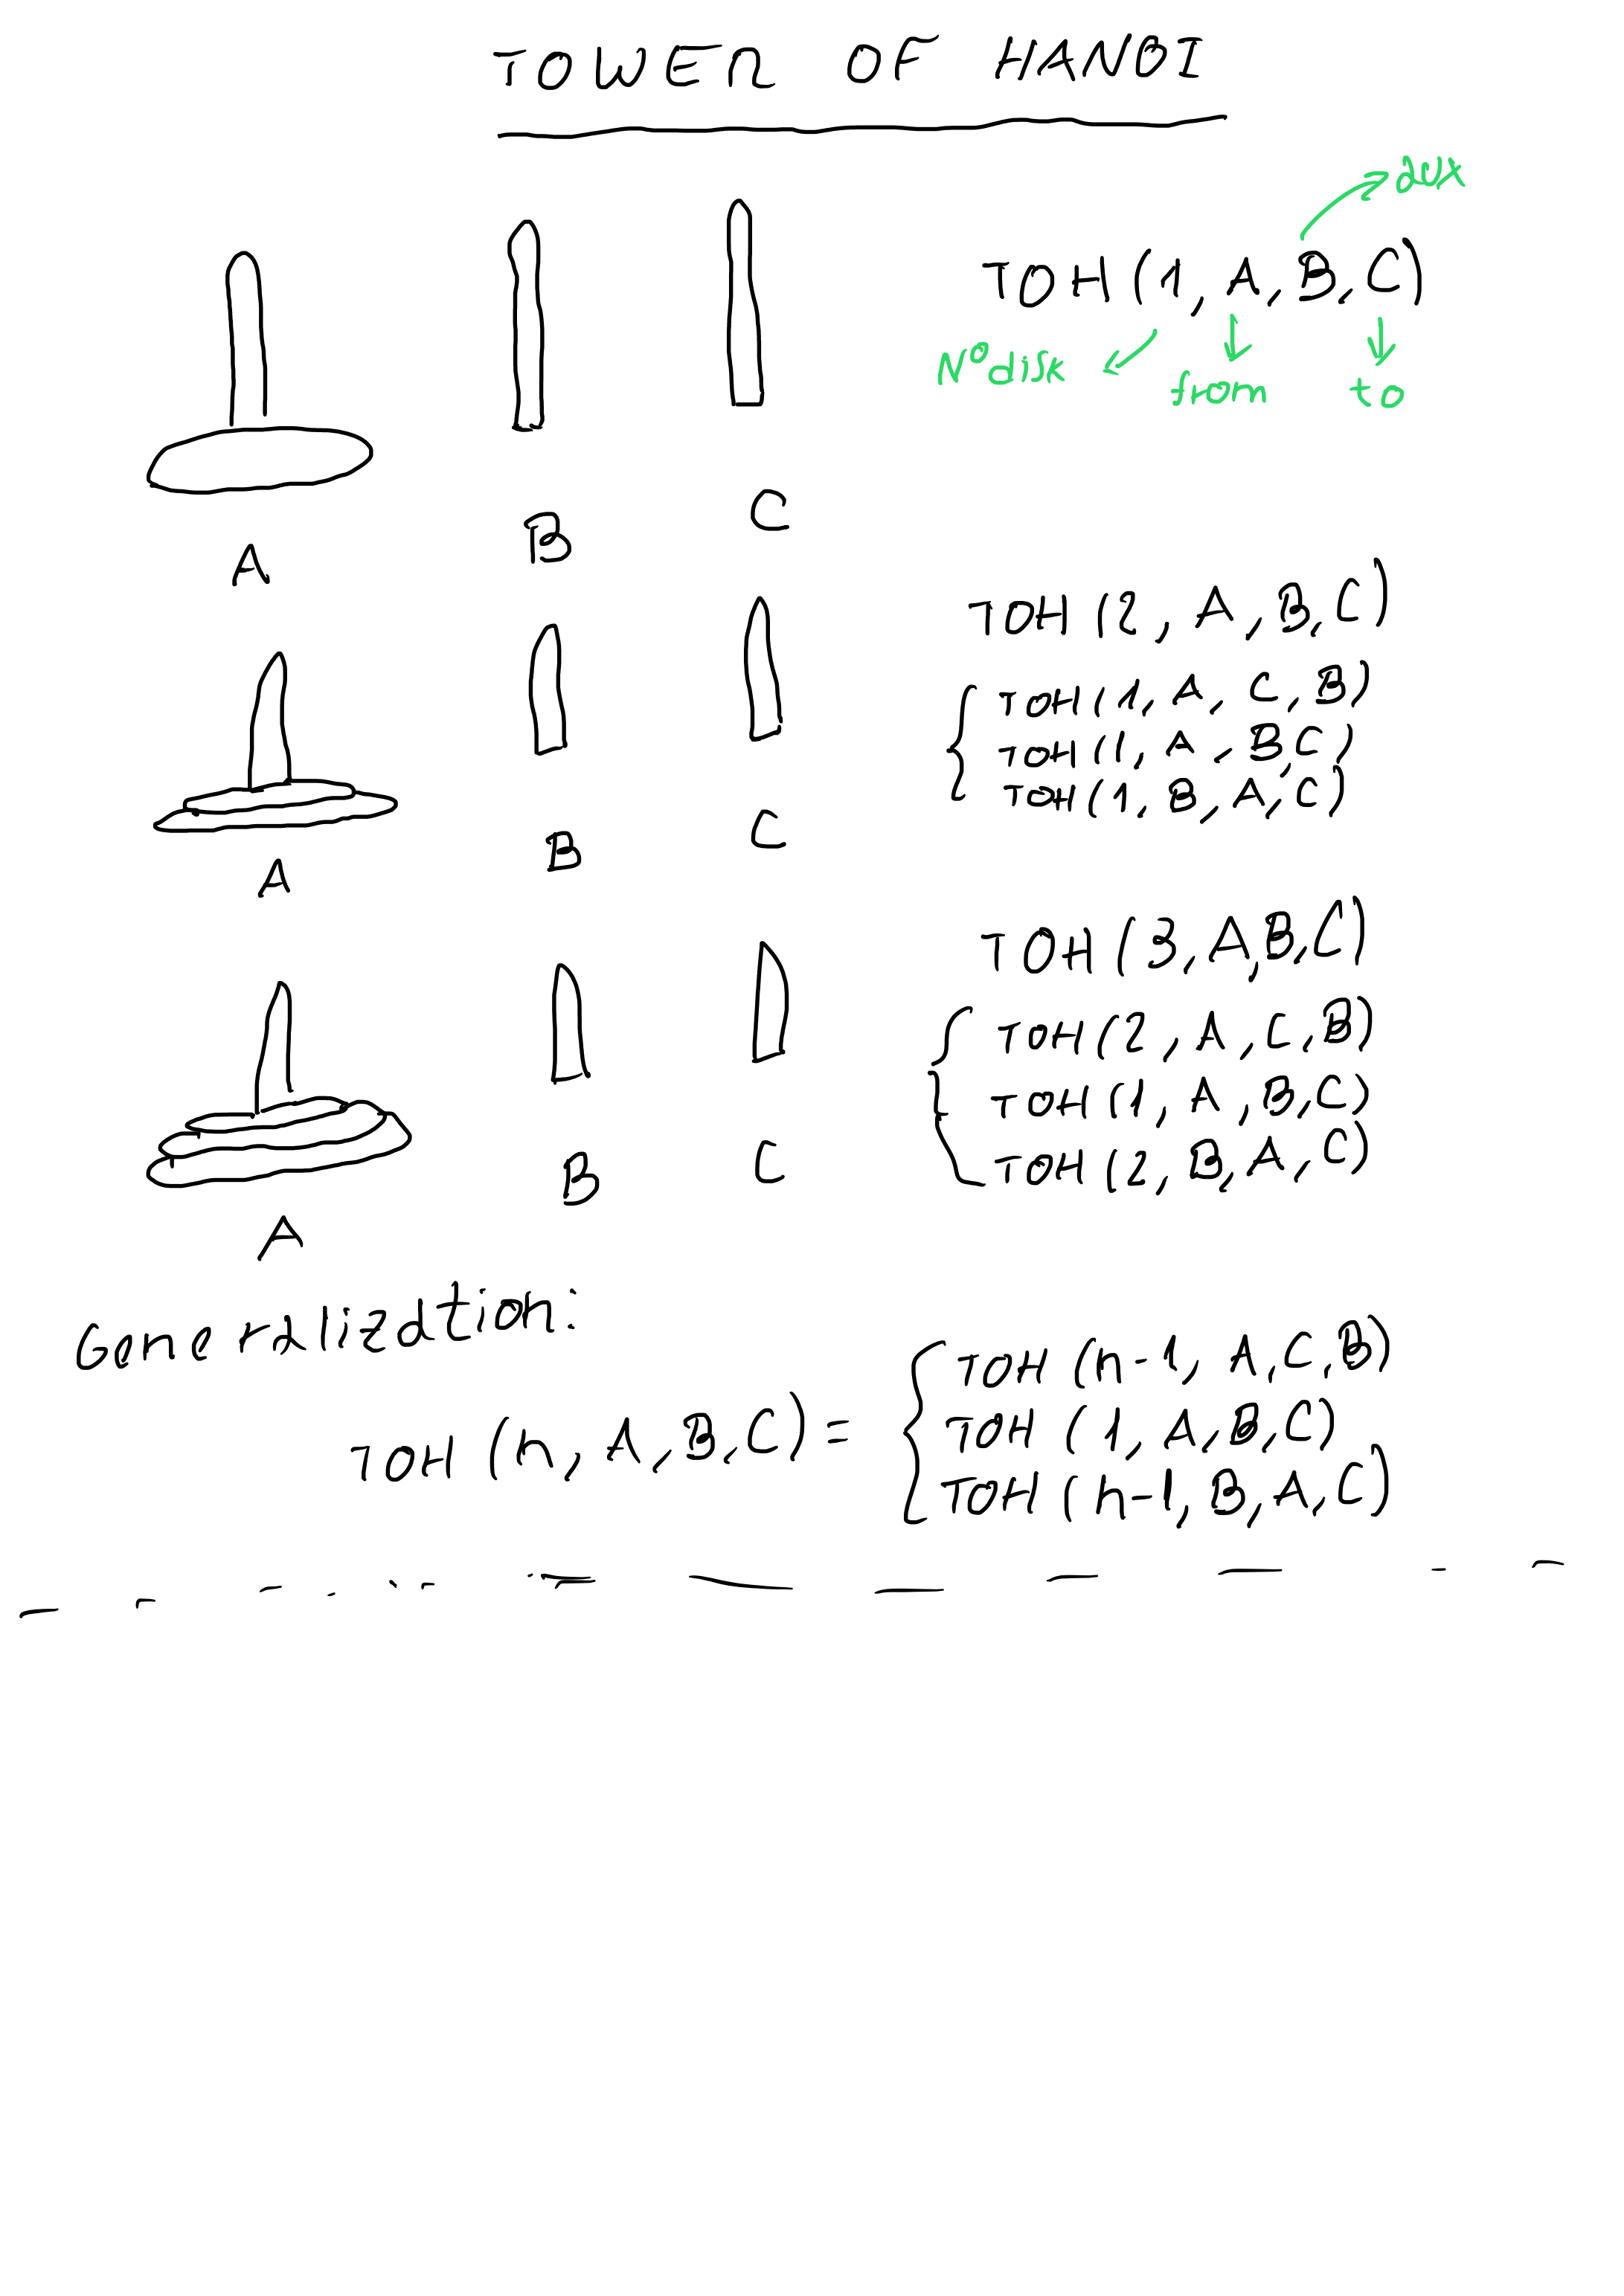 TOWER OF HANOI
aux
TOH (1, A, B, C)
N° disk from to
A B C
TOH (2, A, B, C)
TOH (1, A, C, B)
TOH (1, A, B, C)
TOH (1, B, A, C)
A B C
TOH (3, A, B, C)
TOH (2, A, C, B)
TOH (1, A, B, C)
TOH (2, B, A, C)
A B C
Generalization:
TOH (n, A, B, C) =
TOH (n-1, A, C, B)
TOH (1, A, B, C)
TOH (n-1, B, A, C)